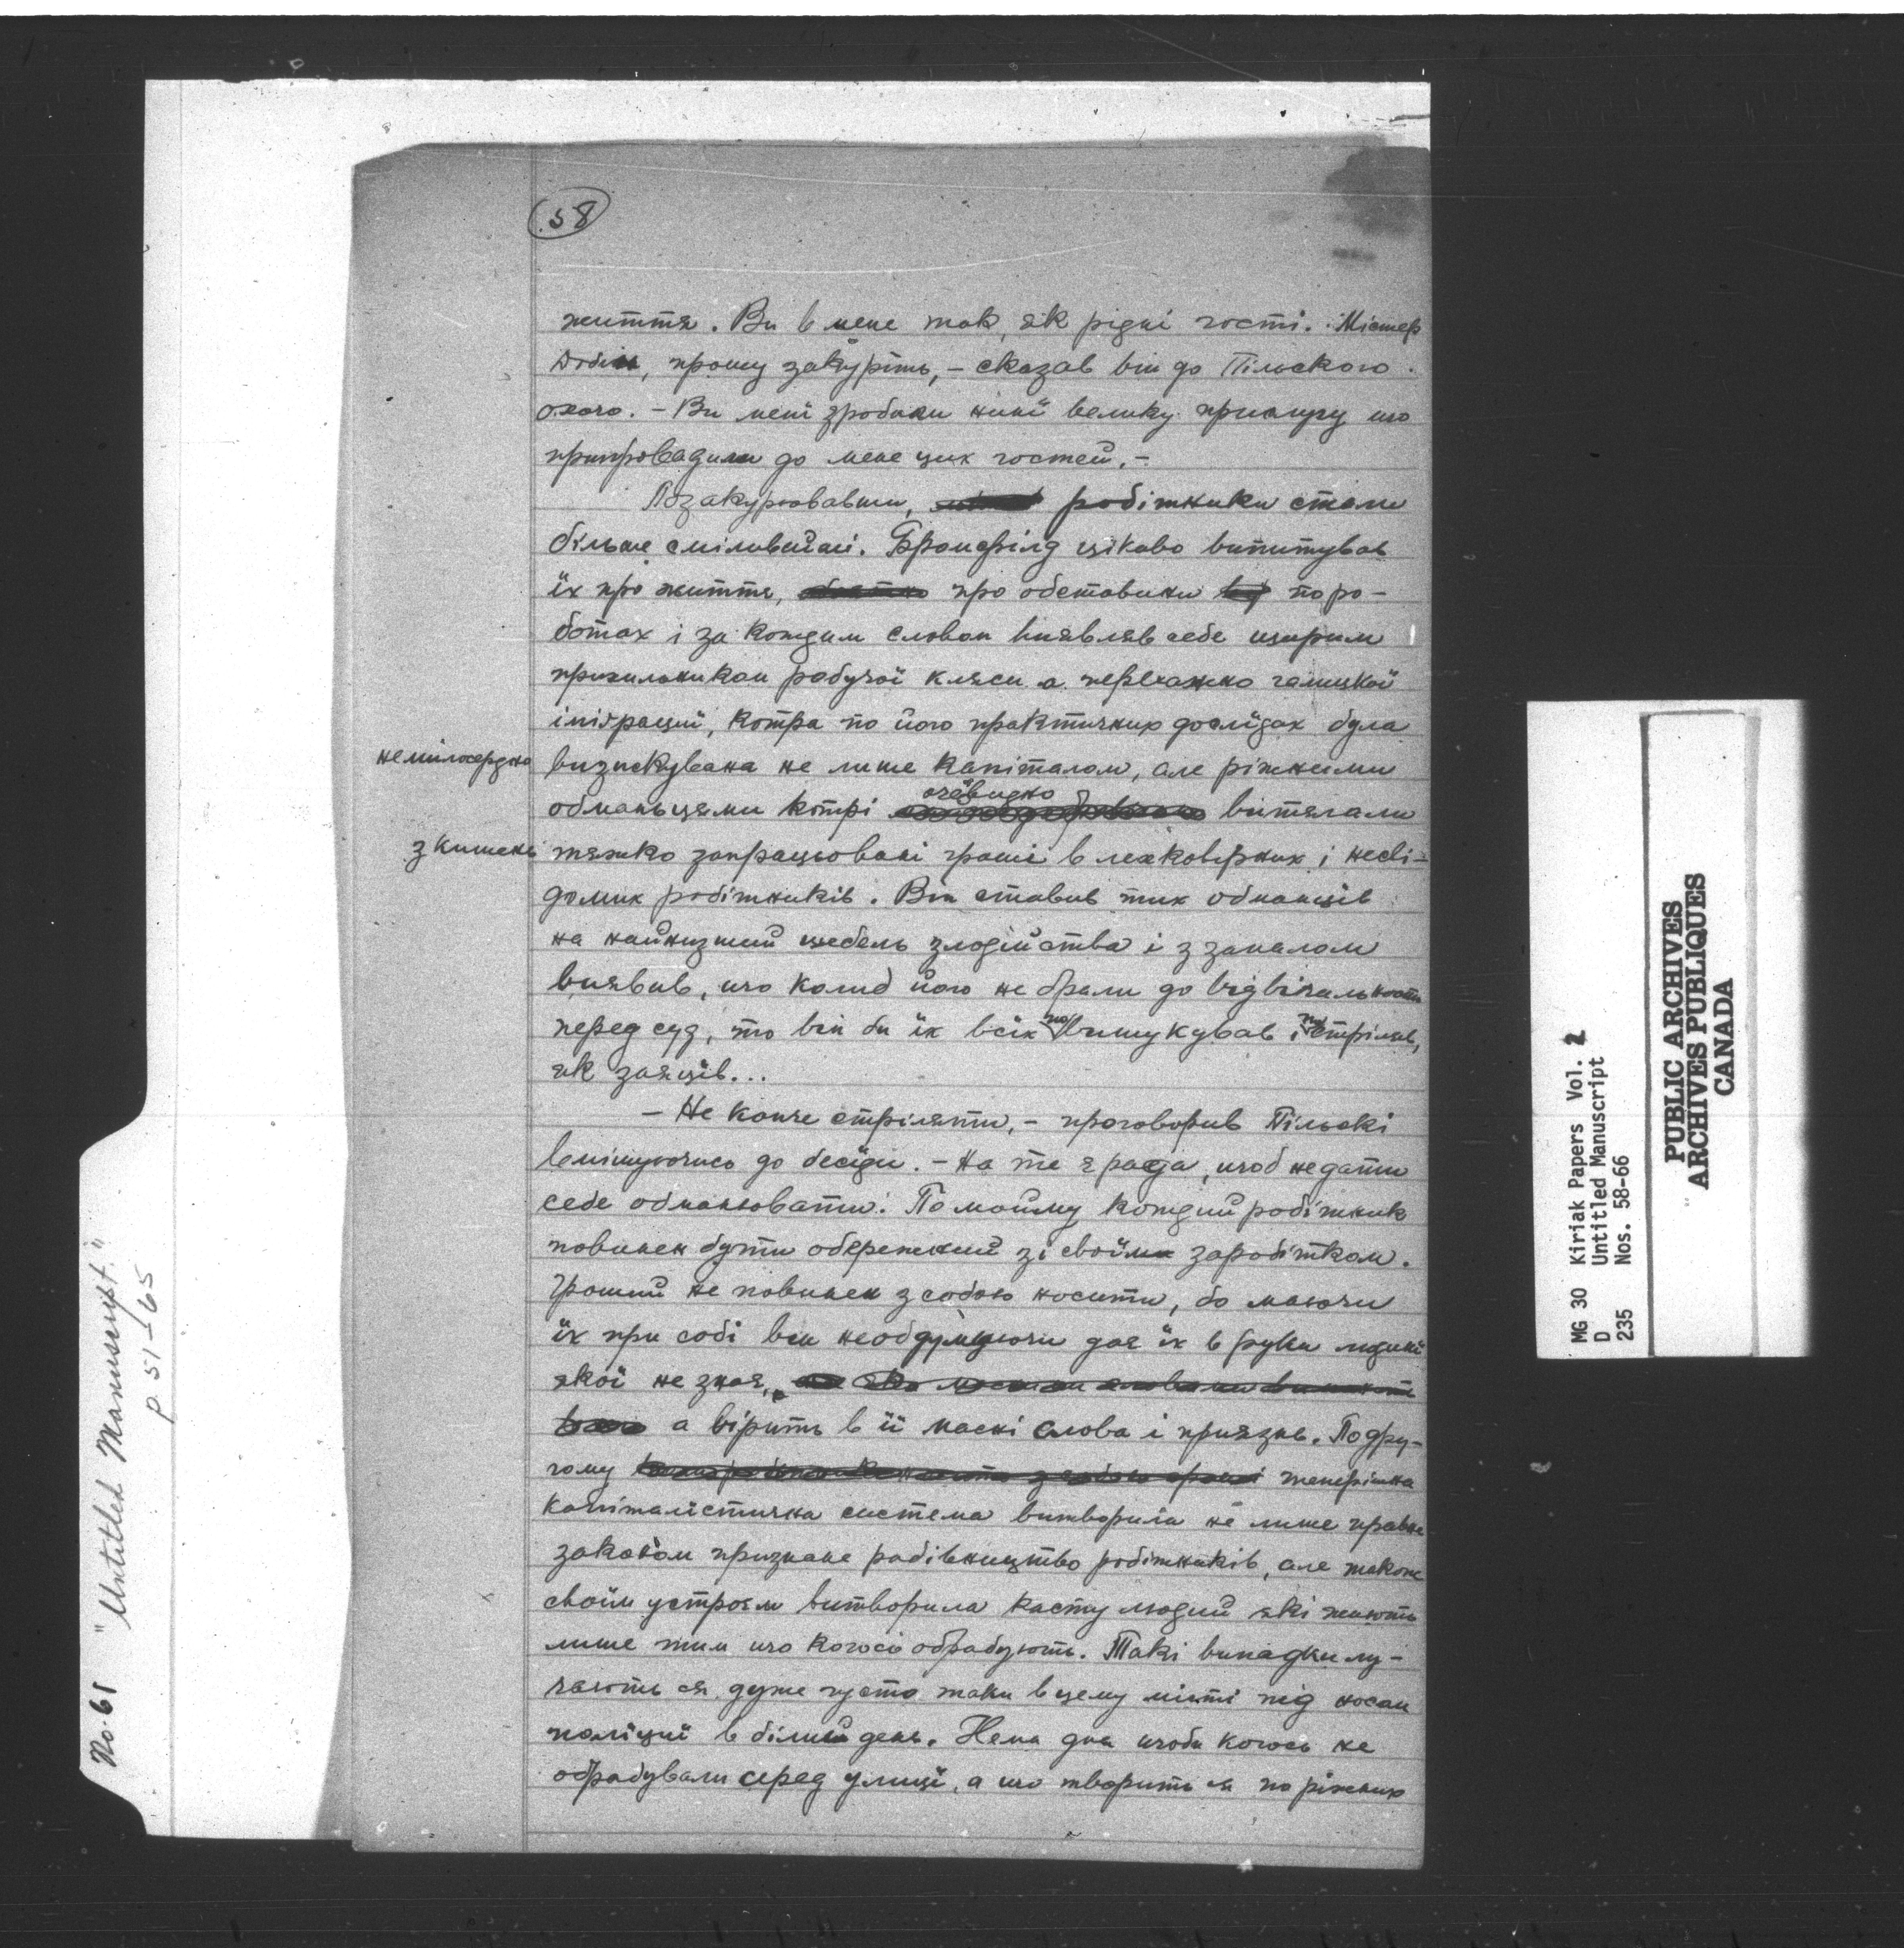 58
життя. Ви в мене так, як рідні гості. Містер
Добін, прошу закуріть, – сказав він до Пільского.
– Ви мені зробили нині велику прислугу що
припровадили до мене цих гостей. –
Позакурювавши, робітники стали
більше сміливійші. Бромфілд цікаво випитував
їх про життя, про обставини по ро-
ботах і за кождим словом виявляв себе щирим
прихильником робучої кляси а переважно галицкої
іміґрациї, котра по його практичних дослідах була
немилосердно визискувана не лише капіталом, але ріжними
обманьцями котрі очевидно витягали
з кишень тяжко запрацьовані гроші в лехковірних і несві-
домих робітників. Він ставив тих обманців
на найнизший щебель злодійства і з запалом
виявив, що колиб його не брали до відвічальности
перед суд, то він би їх всіх повишукував і постріляв,
як заяців...
– Не конче стріляти, – проговорив Пільскі
вмішуючись до бесіди. – На те є рада, щоб не дати
себе обманювати. По мойму кождий робітник
повинен бути обережний зі своїм заробітком.
Гроший не повинен з собою носити, бо маючи
їх при собі він необдумуючи дає їх в руки людині
якої не знає, а вірить в її масні слова і приязнь. По дру-
гому теперішна
капіталістична система витворила не лише правне
законом признане рабівництво робітників, але також
своїм устроєм витворила касту людий які живуть
лише тим що когось обрабують. Такі випадки лу-
чають ся дуже густо таки в цему місті під носом
поліциї в білий день. Нема дня щоби когось не
обрабували серед улиці, а що творить ся по ріжних
No. 65 "Untitled Manuscript."
p. 51–65
MG 30 Kiriak Papers Vol. 2
D Untitled Manuscript
235 Nos. 58-66
PUBLIC ARCHIVES
ARCHIVES PUBLIQUES
CANADA